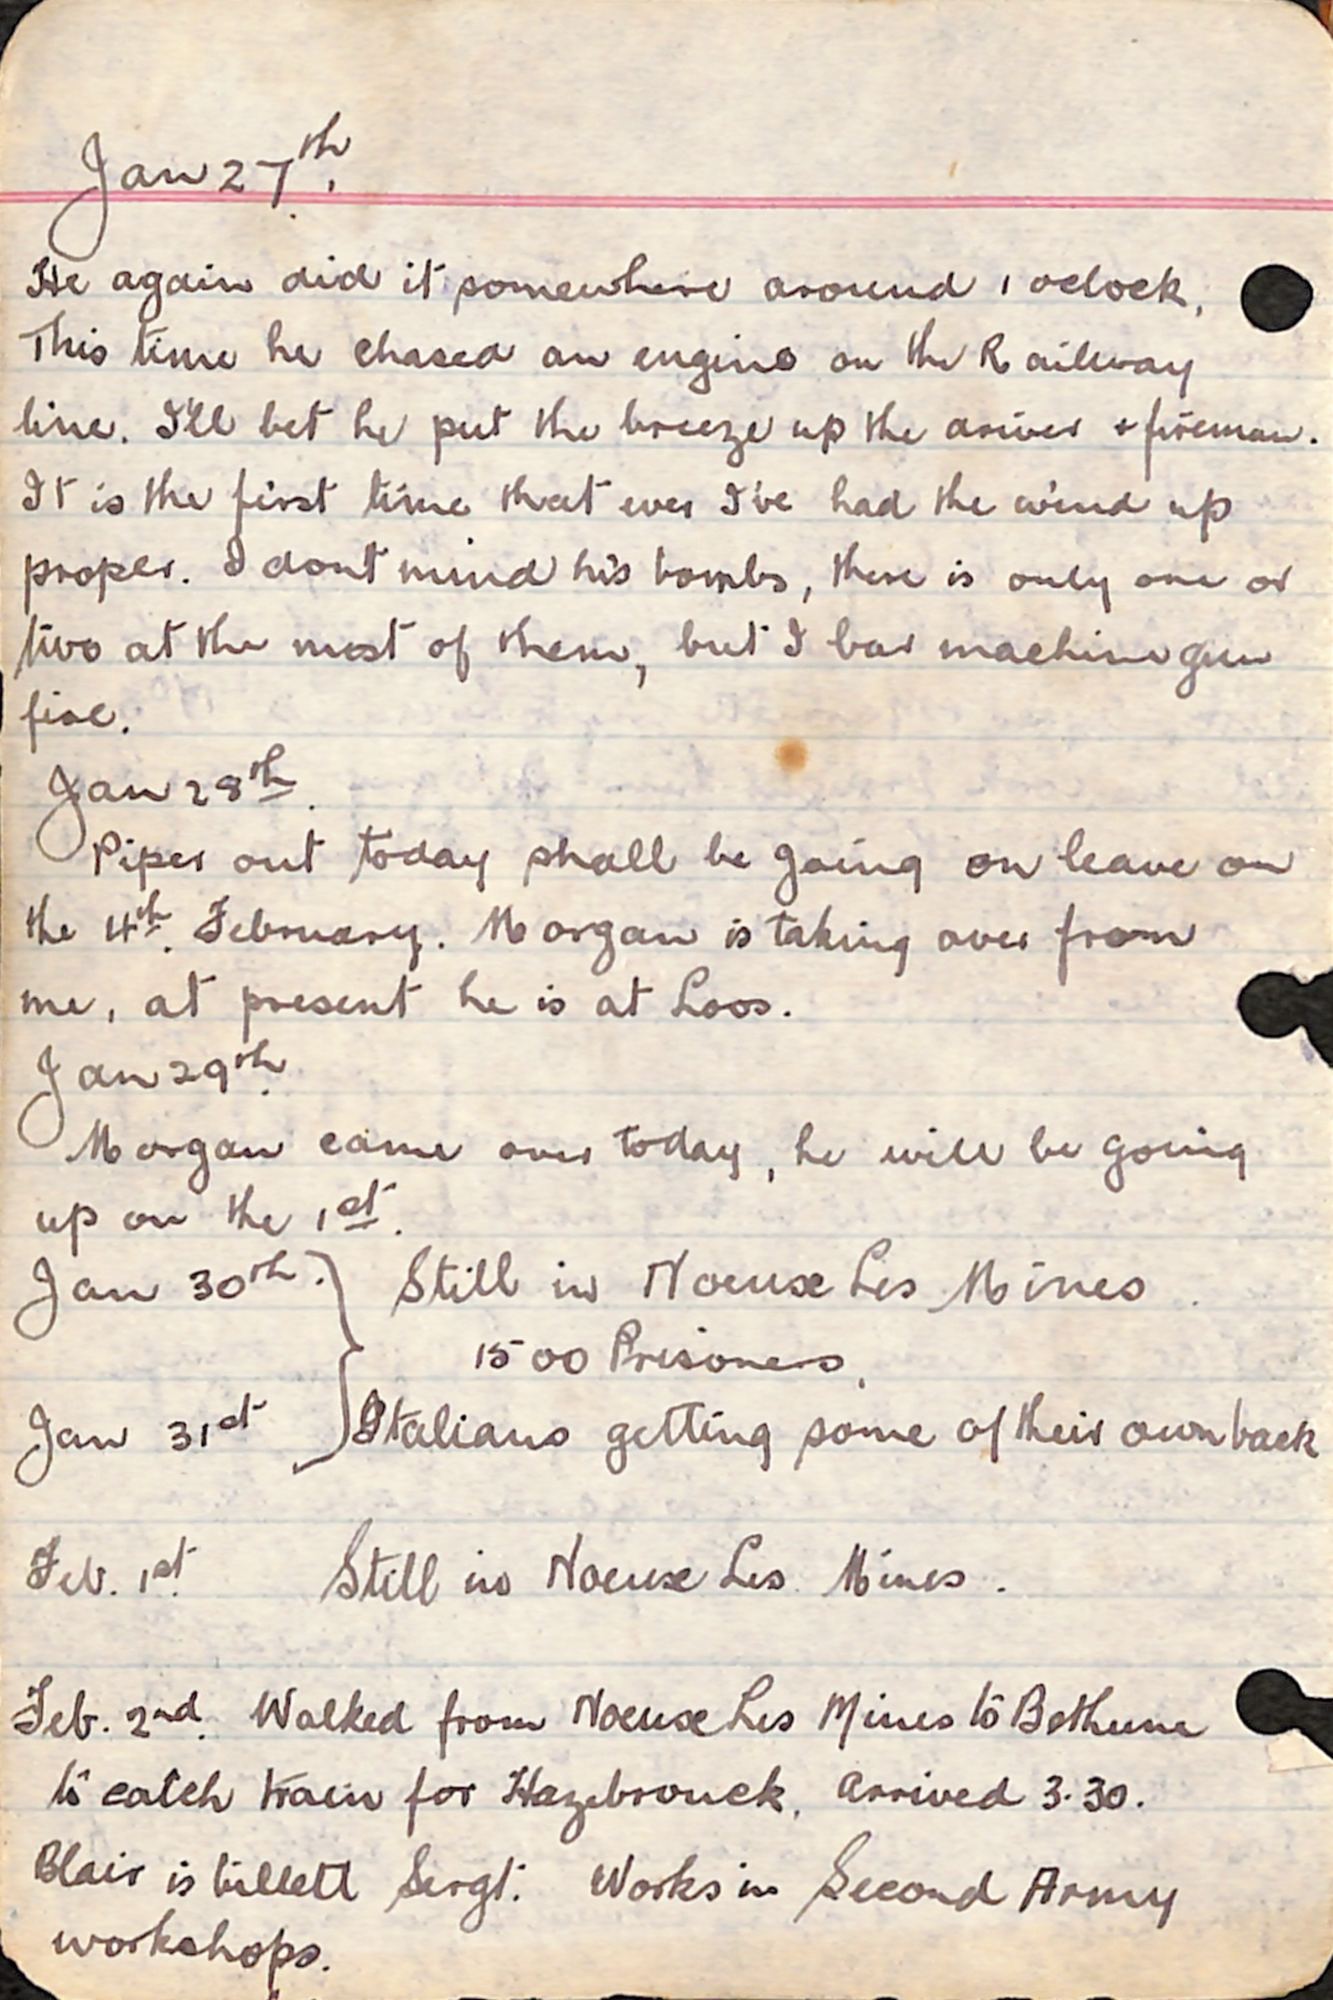 Jan 27th.
He again did it somewhere around 1 oclock.
This time he chased an engine on the Railway
line. I'll bet he put the breeze up the driver & fireman.
It is the first time that ever I've had the wind up
proper. I dont mind his bombs, there is only one or
two at the most of them, but I bar machine gun
fire.
Jan 28th.
Piper out today shall be going on leave on
the 4th. February. Morgan is taking over from
me, at present he is at Loos.
Jan 29th.
Morgan came over today, he will be going
up on the 1st.
Jan 30th. Still in Noeuxe Les Mines.
1500 Prisoners.
Jan 31st Italians getting some of their own back
Feb. 1st. Still in Noeuxe Les Mines.
Feb. 2nd. Walked from Noeuxe Les Mines to Bethune
to catch train for Hazebrouck. Arrived 3.30.
Blair is billett Sergt. Works in Second Army
workshops.